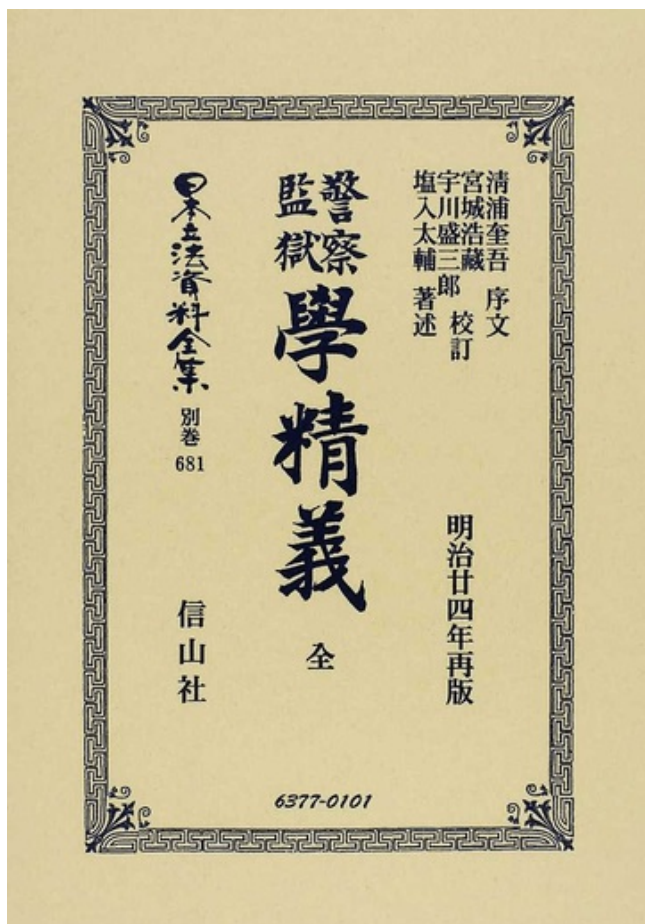 清浦奎吾 序文
宮城浩蔵
宇川盛三郎 校訂
塩入太輔 著述
明治廿四年再版
警察
監獄
學精義
全
日本立法資料全集 別巻 681
信山社
6377-0101